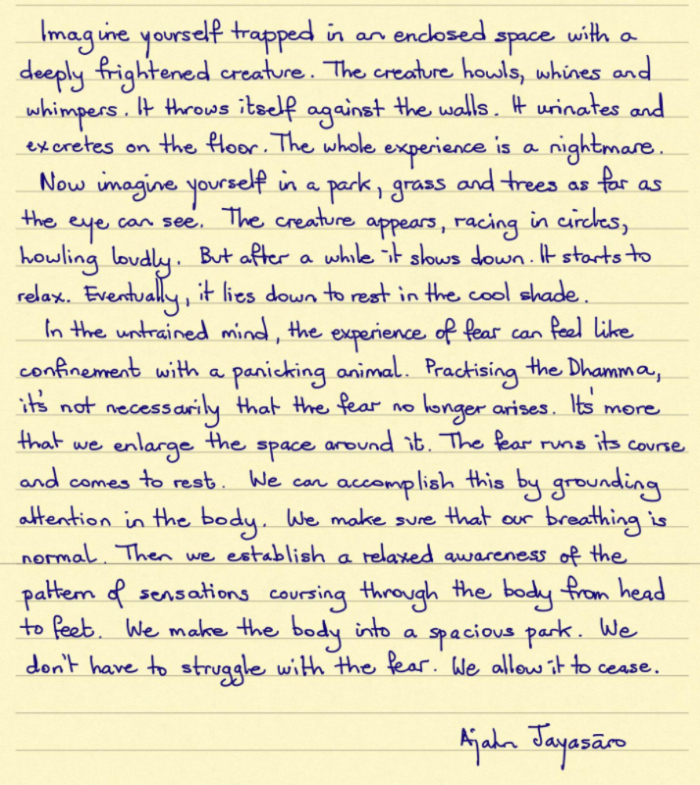 Imagine yourself trapped in an enclosed space with a
deeply frightened creature. The creature howls, whines and
whimpers. It throws itself against the walls. It urinates and
excretes on the floor. The whole experience is a nightmare.
Now imagine yourself in a park, grass and trees as far as
the eye can see. The creature appears, racing in circles,
howling loudly. But after a while it slows down. It starts to
relax. Eventually, it lies down to rest in the cool shade.
In the untrained mind, the experience of fear can feel like
confinement with a panicking animal. Practising the Dhamma,
it's not necessarily that the fear no longer arises. It's more
that we enlarge the space around it. The fear runs its course
and comes to rest. We can accomplish this by grounding
attention in the body. We make sure that our breathing is
normal. Then we establish a relaxed awareness of the
pattern of sensations coursing through the body from head
to feet. We make the body into a spacious park. We
don't have to struggle with the fear. We allow it to cease.
Ajahn Jayasāro